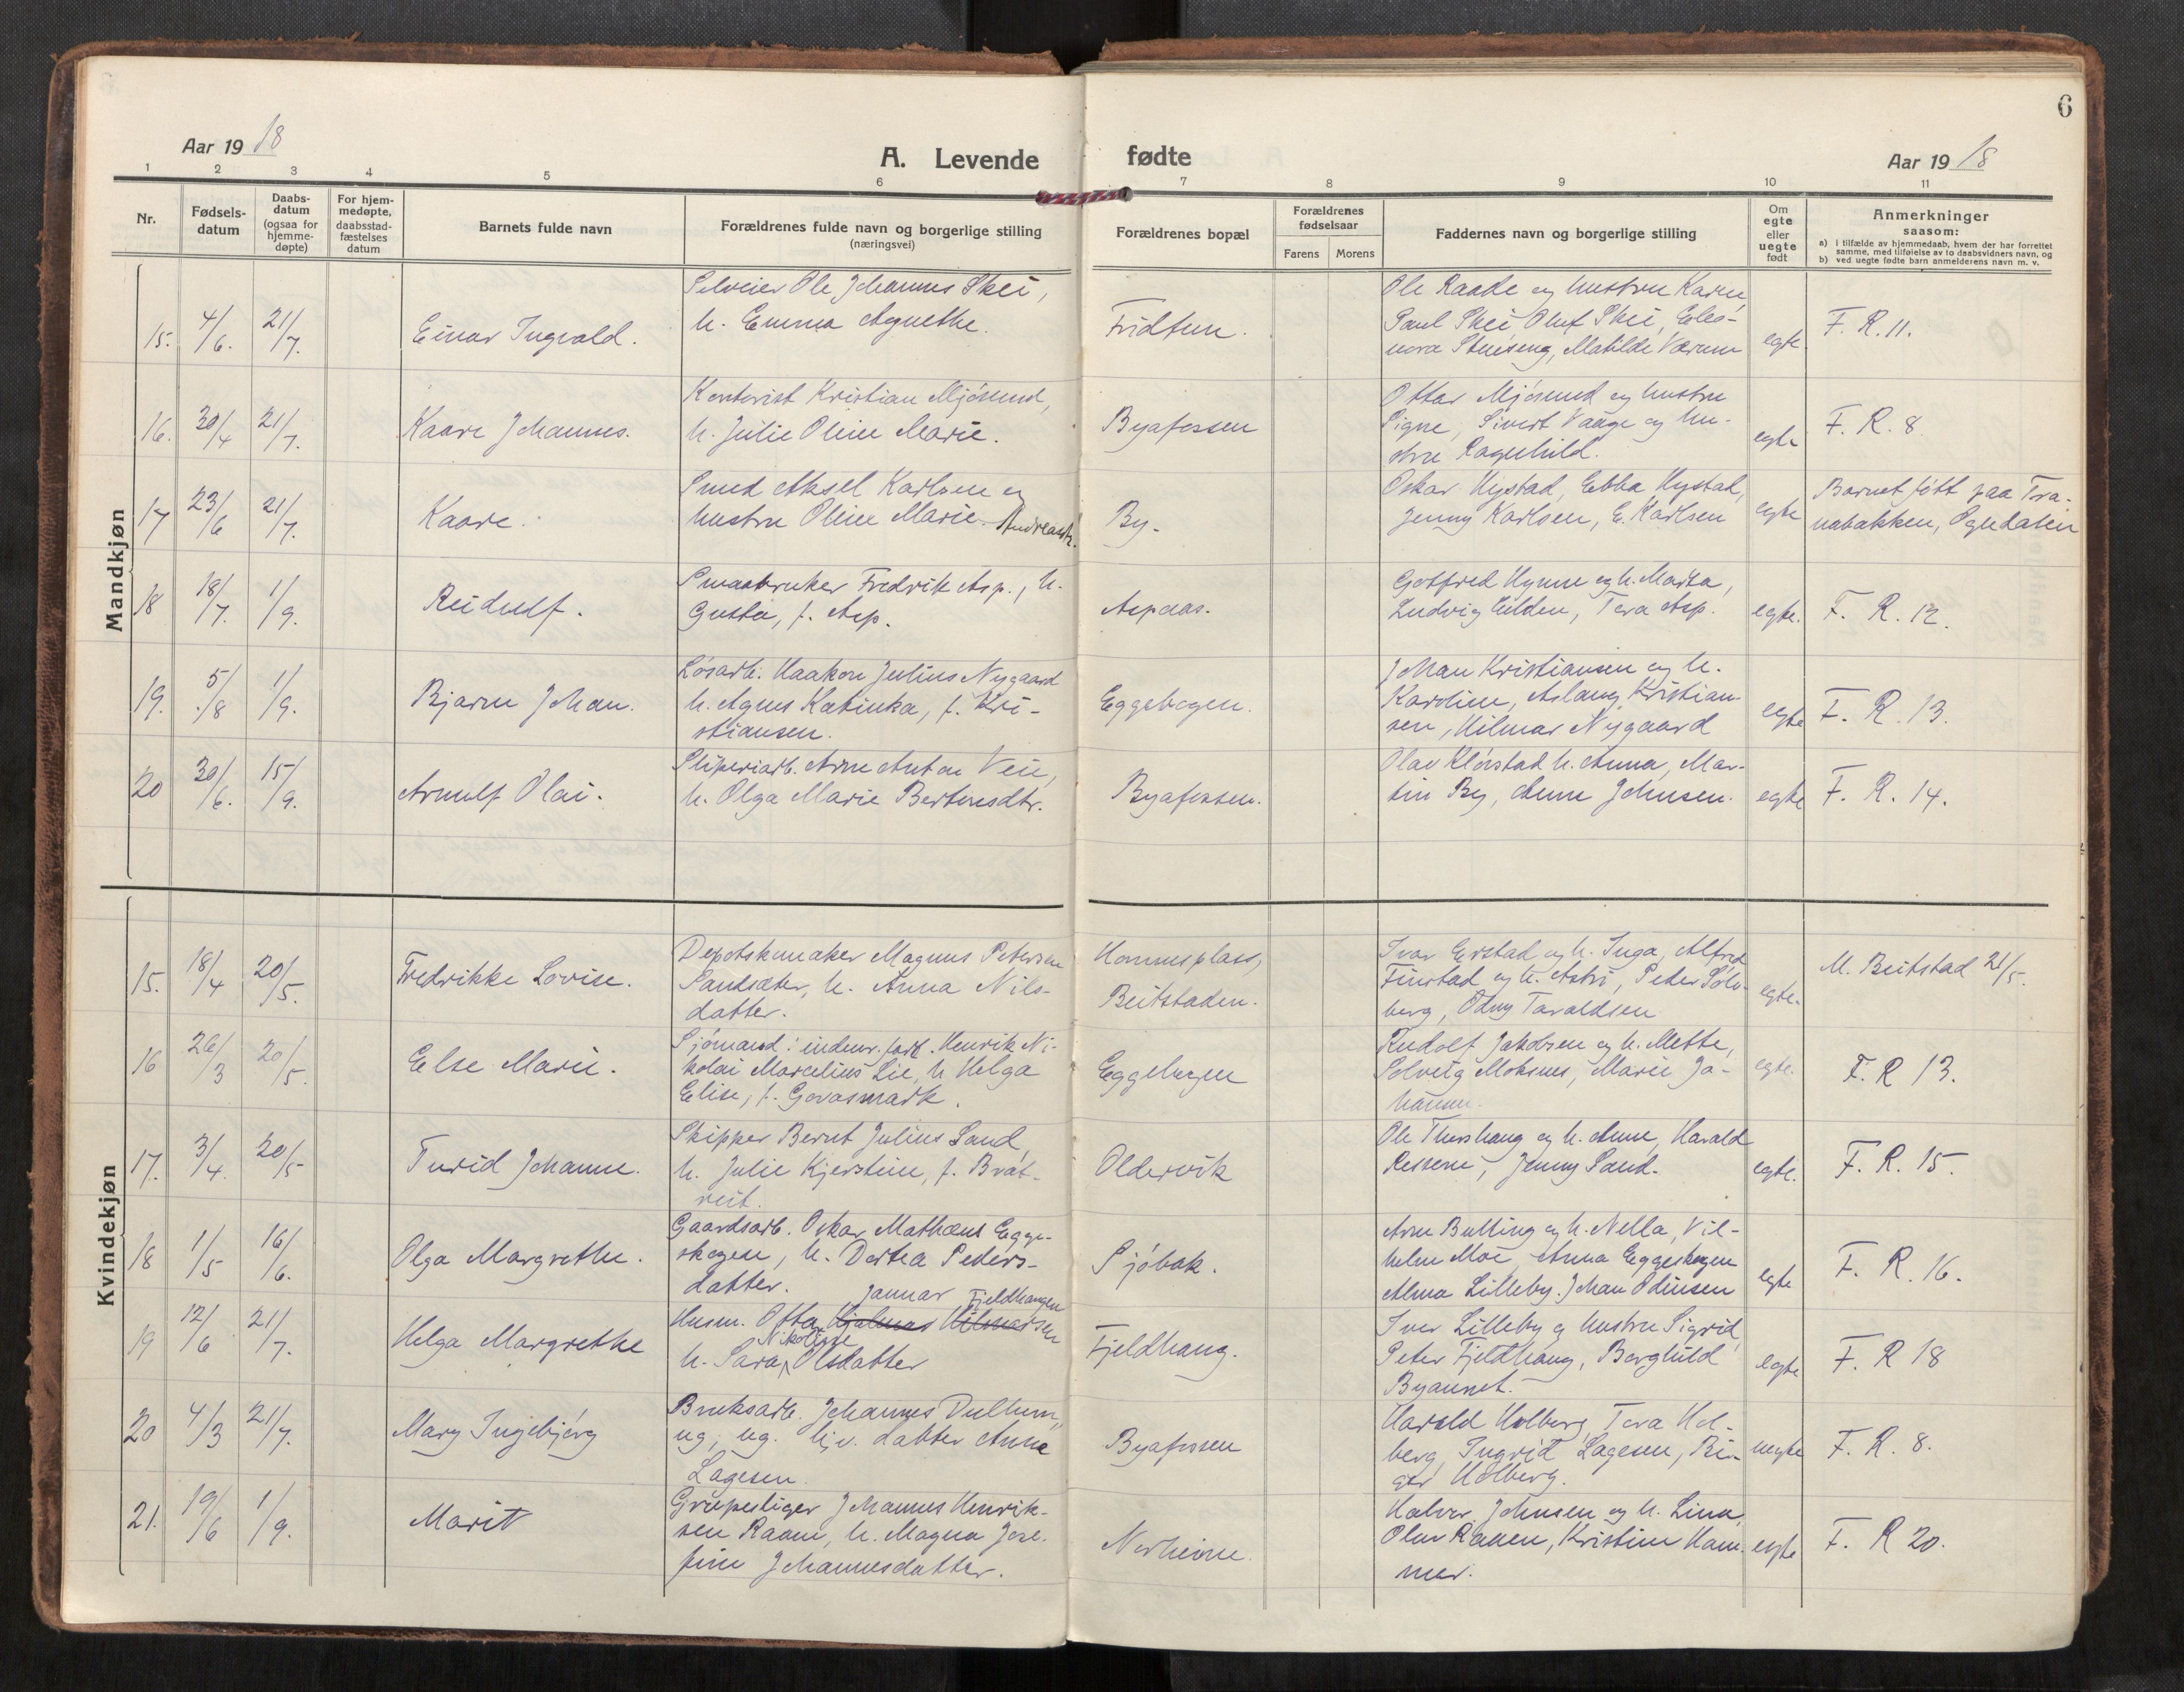 6
Aar 19 18
A. Levende fødte
Aar 19 18
1 2 3 4 5 6 7 8 9 10 11
Nr.
Fødsels-
datum
Daabs-
datum
(ogsaa for
hjemme-
døpte)
For hjem-
medøpte,
daabsstad-
fæstelses
datum
Barnets fulde navn
Forældrenes fulde navn og borgerlige stilling
(næringsvei)
Forældrenes bopæl
Forældrenes
fødselsaar
Farens Morens
Faddernes navn og borgerlige stilling
Om
egte
eller
uegte
født
Anmerkninger
saasom:
a) i tilfælde av hjemmedaab, hvem der har forrettet
samme, med tilføielse av to daabsvidners navn, og
b) ved uegte fødte barn anmelderens navn m. v.
Mandkjøn
15. 4/6. 21/7. Einar Ingvald.
Selveier Ole Johannes Skei,
h. Emma Agnethe.
Fridtun.
Ole Raade og hustru Karen,
Paul Skei, Oluf Skei, Eleo-
nora Stenseng, Matilde Værum
egte F. R. 11.
16. 30/4 21/7. Kaare Johannes.
Kontorist Kristian Mjösund,
h. Julie Oline Marie.
Byafossen
Ottar Mjösund og hustru
Signe, Sivert Vaage og hu-
stru Ragnhild.
egte F. R. 8.
17 23/6 21/7. Kaare.
Smed Aksel Karlsen og
hustru Oline Marie Andreasdt.
By.
Oskar Hystad, Ebba Hystad,
Jenny Karlsen, E. Karlsen
egte
Barnet föt paa Tra-
nabakken, Ogndalen
18 18/7. 1/9. Reidulf.
Smaabruker Fredrik Asp., h.
Gusta, f. Asp.
Aspaas.
Gotfred Hynne og h. Marta,
Ludvig Eilden, Tora Asp.
egte. F. R. 12.
19. 5/8 1/9. Bjarne Johan.
Lösarb. Haakon Julius Nygaard
h. Agnes Katinka, f. Kri-
stiansen.
Eggebogen.
Johan Kristiansen og h.
Karoline, Aslaug Kristian-
sen, Hilmar Nygaard
egte F. R. 13.
20 30/6. 15/9. Arnulf Olai.
Sliperiarb. Arne Anton Veie,
h. Olga Marie Bertinsdtr.
Byafossen.
Olav Klörstad h. Anna, Mar-
tin By, Anne Johnsen.
egte F. R. 14.
Kvindekjøn
15. 18/4 20/5. Fredrikke Lovise.
Depotskomaker Magnus Petersen
Sandsæter, h. Anna Nils-
datter.
Homnesplass,
Beitstaden.
Ivar Erstad og h. Inga, Alfred
Finstad og h. Astri, Peder Sölv-
berg, Odny Taraldsen
egte. M. Beitstad 21/5.
16 26/3 20/5. Else Marie.
Sjömand i indenr. fart. Henrik Ni-
kolai Marcelius Lie, h. Helga
Elise, f. Govasmark.
Eggebogen
Rudolf Jakobsen og h. Mette,
Solveig Moksnes, Marie Jo-
hansen.
egte. F. R 13.
17. 3/4. 20/5 Turid Johanne.
Skipper Bernt Julius Sand,
h. Julie Kjerstine, f. Brat-
reit.
Oldervik
Ole Thorshaug og h. Anne, Harald
Ressem, Jenny Sand.
egte. F. R. 15.
18 1/5 16/6. Olga Margrethe.
Gaardsarb. Oskar Mathæus Egge-
skogen, h. Dortea Peders-
datter.
Sjöbak.
Arne Bulling og h. Nella, Vil-
helm Moe, Anna Eggeskogen
Alma Lilleby. Johan Odinsen
egte F. R. 16.
19 12/6 21/7. Helga Margrethe
Januar Fjeldhaugen
Husm. Otto Hjalmar Hilmarsen
Nikoline
h. Sara, Olsdatter
Fjeldhaug.
Iver Lilleby og hustru Sigrid,
Peter Fjeldhaug, Borghild
Byaunet.
egte F. R 18
20 4/3 21/7. Mary Ingebjörg
Bruksarb. Johannes Dulhum,
ug, ug. hjv. datter Anna
Lagesen.
Byafossen
Harald Holberg, Tora Hol-
berg, Ingrid Lagesen, Bir-
ger Holberg.
uegte F. R. 8.
21. 19/6 1/9. Marit
Grubestiger Johannes Henrik-
sen Raaen, h. Magna Jose-
fine Johannesdatter.
Norheim.
Halvor Johnsen og h. Lina,
Olav Raaen, Kristine Ham-
mer.
egte F. R 20.